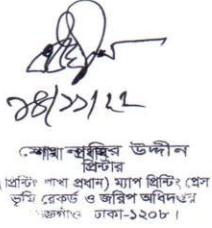 উদ্দীন
প্রিন্টার
(প্রিন্টিং শাখা প্রধান) ম্যাপ প্রিন্টিং প্রেস
ভূমি রেকর্ড ও জরিপ অধিদপ্তর
তেজগাঁও ঢাকা-১২০৮।